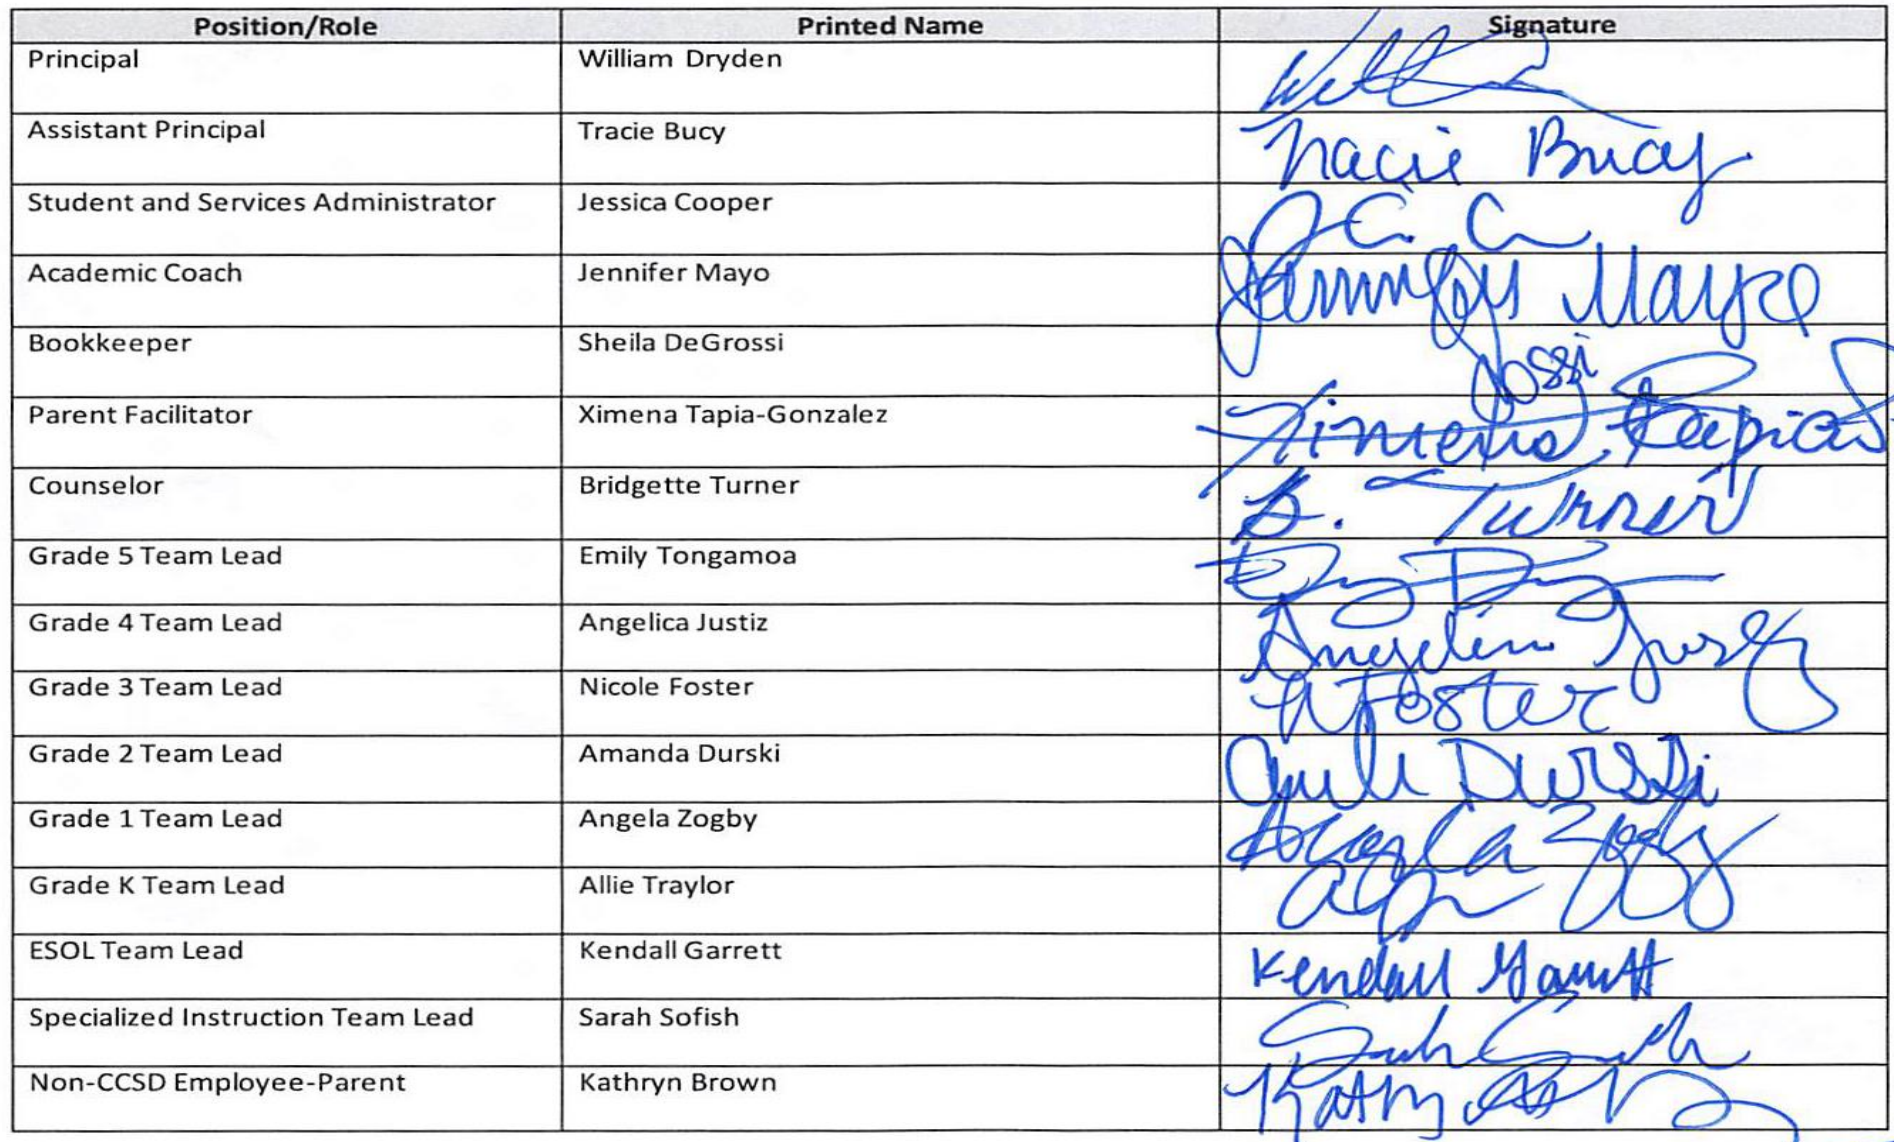 Position/Role Printed Name Signature
Principal William Dryden
Assistant Principal Tracie Bucy Tracie Bucy
Student and Services Administrator Jessica Cooper
Academic Coach Jennifer Mayo Jennifer Mayo
Bookkeeper Sheila DeGrossi
Parent Facilitator Ximena Tapia-Gonzalez Ximena Tapia
Counselor Bridgette Turner B. Turner
Grade 5 Team Lead Emily Tongamoa
Grade 4 Team Lead Angelica Justiz
Grade 3 Team Lead Nicole Foster N Foster
Grade 2 Team Lead Amanda Durski Durski
Grade 1 Team Lead Angela Zogby Angela Zogby
Grade K Team Lead Allie Traylor
ESOL Team Lead Kendall Garrett Kendall Garrett
Specialized Instruction Team Lead Sarah Sofish
Non-CCSD Employee-Parent Kathryn Brown